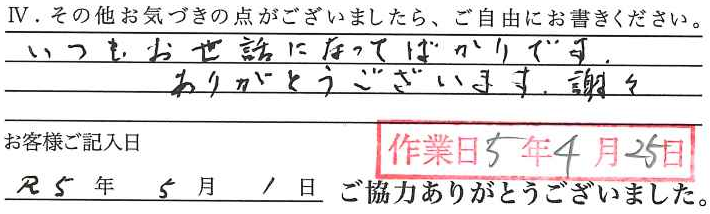 Ⅳ．その他お気づきの点がございましたら、ご自由にお書きください。
いつもお世話になってばかりです.
ありがとうございます.謝々
お客様ご記入日
作業日5年4月25日
R5年5月1日 ご協力ありがとうございました。